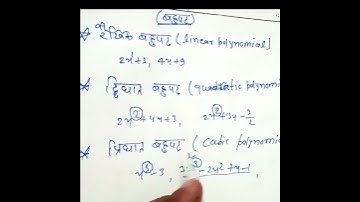 बहुपद
रैखिक बहुपद (linear polynomial)
2x¹+3, 4x+9
द्विघात बहुपद (quadratic polynomi
2x²+4x+3, x²+3x-7/2
त्रिघात बहुपद (Cubic polynomi
x³-3, -2x²+x-1,